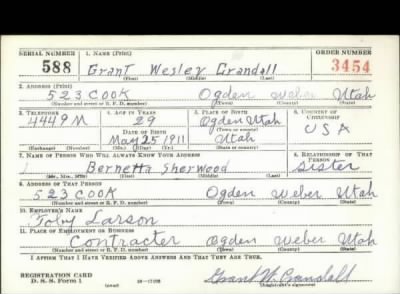 SERIAL NUMBER 1. NAME (Print) ORDER NUMBER
588 Grant Wesley Crandall 3454
(First) (Middle) (Last)
2. ADDRESS (Print)
523 COOK Ogden Weber Utah
(Number and street or R. F. D. number) (Town) (County) (State)
3. TELEPHONE 4. AGE IN YEARS 5. PLACE OF BIRTH 6. COUNTRY OF CITIZENSHIP
4449M 29 Ogden Utah
(Town or county)
DATE OF BIRTH USA
May 25 1911 Utah
(Exchange) (Number) (Mo.) (Day) (Yr.) (State or country)
7. NAME OF PERSON WHO WILL ALWAYS KNOW YOUR ADDRESS 8. RELATIONSHIP OF THAT PERSON
Bernetta Sherwood Sister
(Mr., Mrs., Miss) (First) (Middle) (Last)
9. ADDRESS OF THAT PERSON
523 COOK Ogden Weber Utah
(Number and street or R. F. D. number) (Town) (County) (State)
10. EMPLOYER'S NAME
Toby Larson
11. PLACE OF EMPLOYMENT OR BUSINESS
Contracter Ogden Weber Utah
(Number and street or R. F. D. number) (Town) (County) (State)
I AFFIRM THAT I HAVE VERIFIED ABOVE ANSWERS AND THAT THEY ARE TRUE.
REGISTRATION CARD
D. S. S. Form 1 Grant W. Crandall
(Registrant's signature)